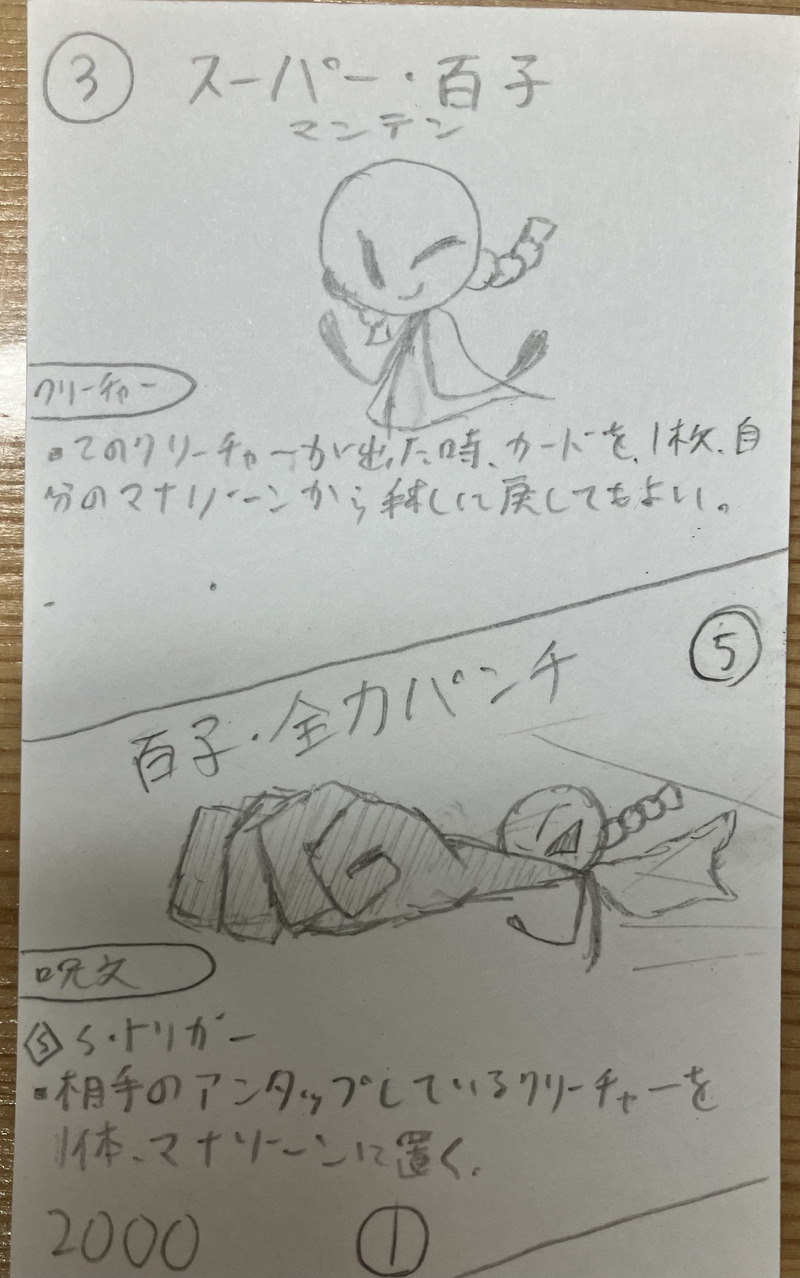 3 スーパー・百子
マンテン
クリーチャー
▪このクリーチャーが出た時、カードを、1枚、自
分のマナゾーンから手札に戻してもよい。
5
百子・全力パンチ
呪文
S S・トリガー
▪相手のアンタップしているクリーチャーを
1体、マナゾーンに置く。
2000 1